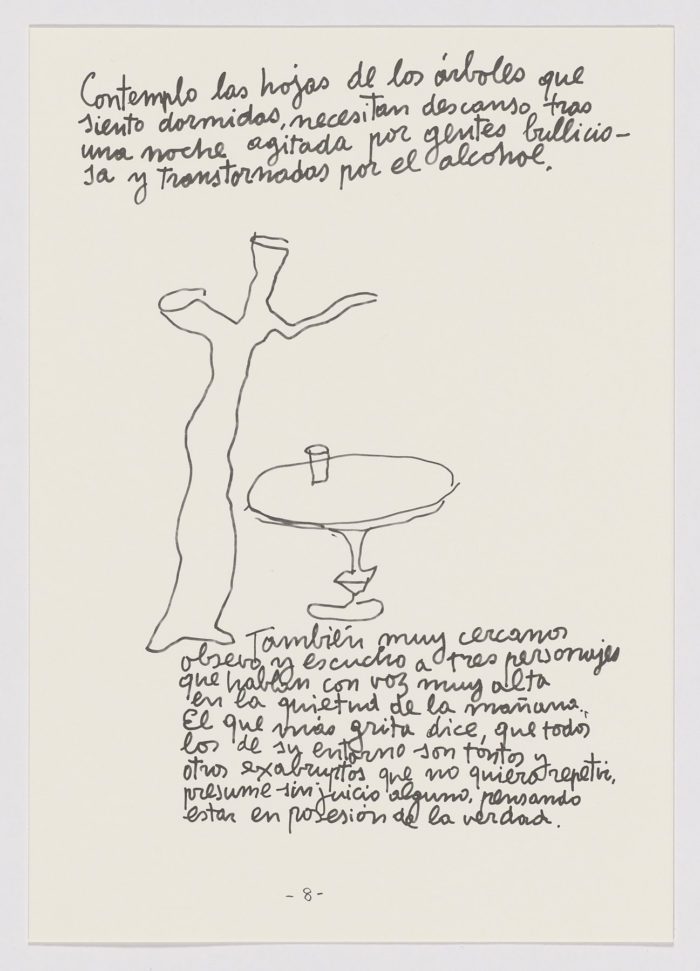 Contemplo las hojas de los árboles que
siento dormidas, necesitan descanso tras
una noche agitada por gentes bullicio-
sa y transtornadas por el alcohol.
También muy cercanos
obsevo y escucho a tres personajes
que hablan con voz muy alta
en la quietud de la mañana.
El que más grita dice, que todos
los de su entorno son tontos y
otros exabruptos que no quiero repetir,
presume sin juicio alguno, pensando
estar en posesión de la verdad.
-8-